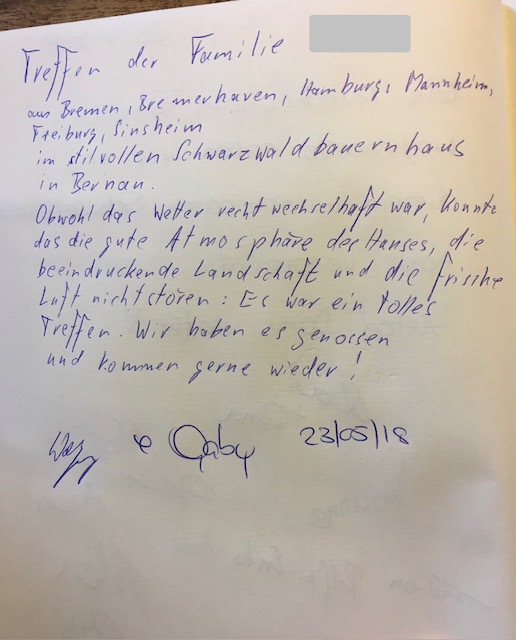 Treffen der Familie
aus Bremen, Bremerhaven, Hamburg, Mannheim,
Freiburg, Sinsheim
im stilvollen Schwarzwaldbauernhaus
in Bernau.
Obwohl das Wetter recht wechselhaft war, konnte
das die gute Atmosphäre des Hauses, die
beeindruckende Landschaft und die frische
Luft nicht stören: Es war ein tolles
Treffen. Wir haben es genossen
und kommen gerne wieder!
& Gaby 23/05/18